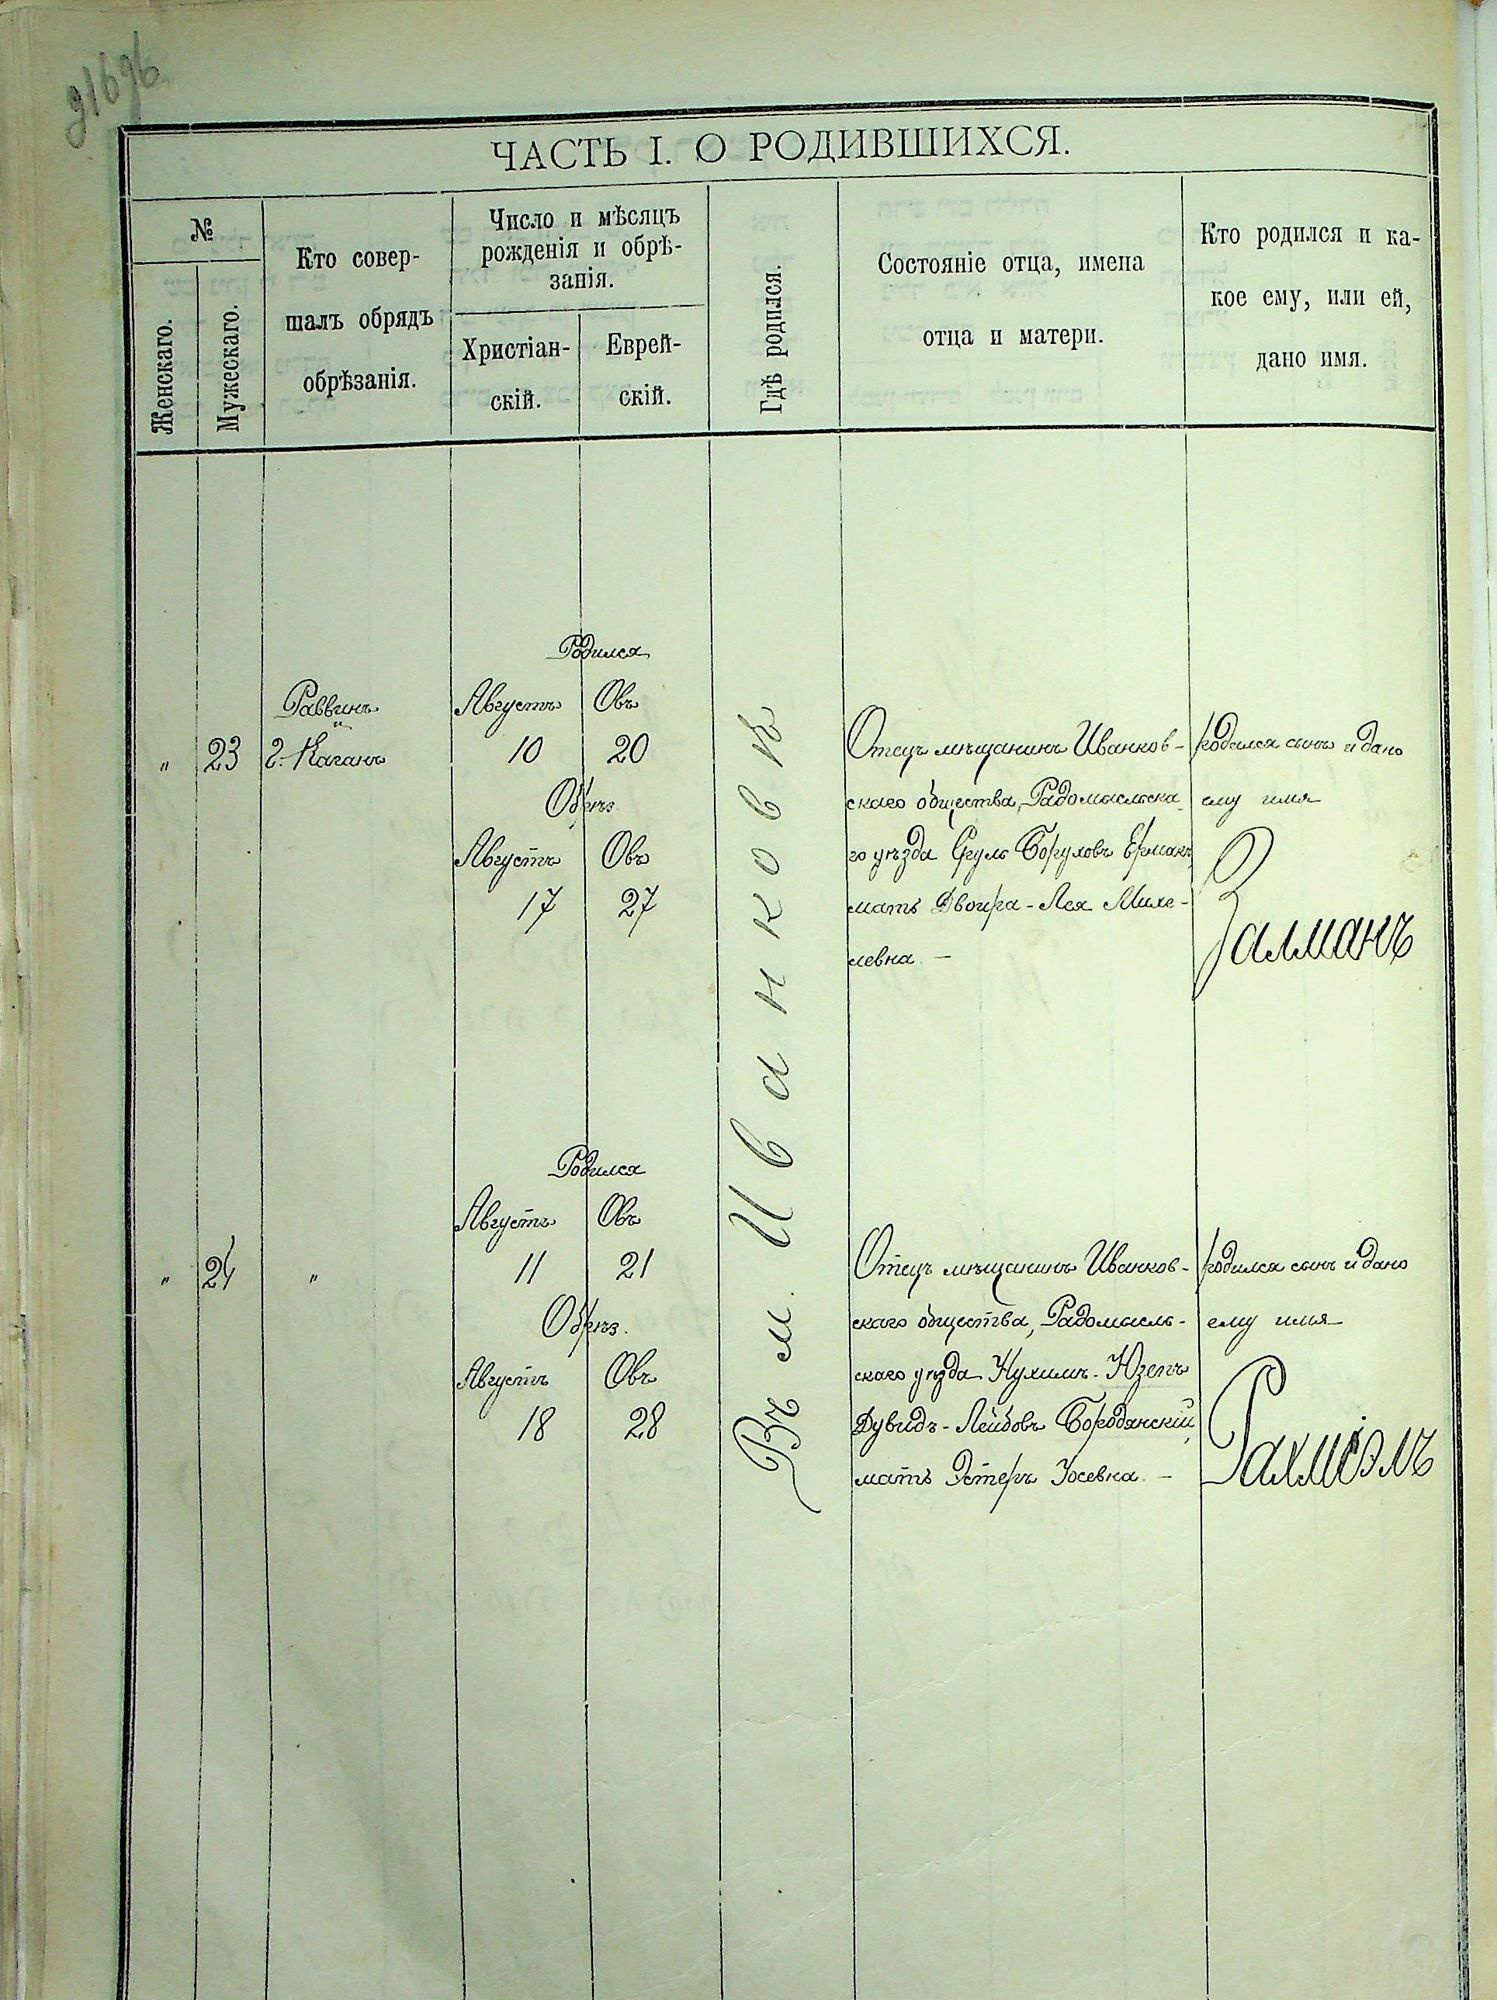 ЧАСТЬ I. О РОДИВШИХСЯ.
№
Женскаго.
Мужескаго.
Кто совер-
шалъ обрядъ
обрѣзанія.
Число и мѣсяцъ
рожденія и обрѣ-
занія.
Христіан-
скій.
Еврей-
скій.
Гдѣ родился.
Состояніе отца, имена
отца и матери.
Кто родился и ка-
кое ему, или ей,
дано имя.
Родился
Раввинъ
Августъ Овъ
" 23 г. Каганъ 10 20
Обрѣз.
Августъ Овъ
17 27
Въ м. Иванковѣ
Отецъ мѣщанинъ Иванков-
скаго общества, Радомысльска
го уѣзда Сруль Боруховъ Ерманъ
мать Двойра-Лея Михе-
левна —
родился сынъ и дано
ему имя
Залманъ
Родился
Августъ Овъ
" 24 " 11 21
Обрѣз.
Августъ Овъ
18 28
Отецъ мѣщанинъ Иванков-
скаго общества, Радомысль-
скаго уѣзда Нухимъ-Юзепъ
Дувидъ-Лейбовъ Бородянскій,
мать Эстеръ Іосевна —
родился сынъ и дано
ему имя
Рахміэль